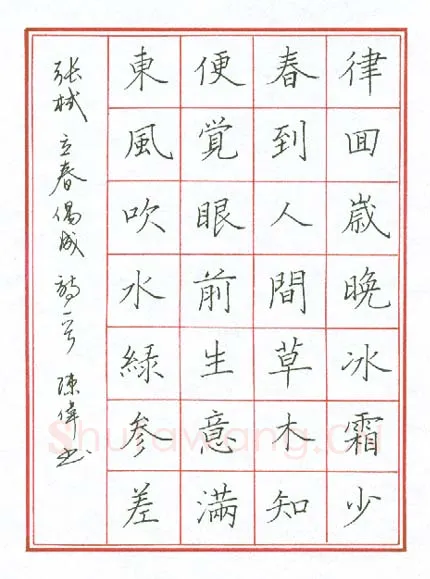 律囬歳晚冰霜少
春到人間草木知
便覚眼前生意滿
東風吹水緑参差
张栻立春偶成詩一首 陳偉书
Shufawang.cn